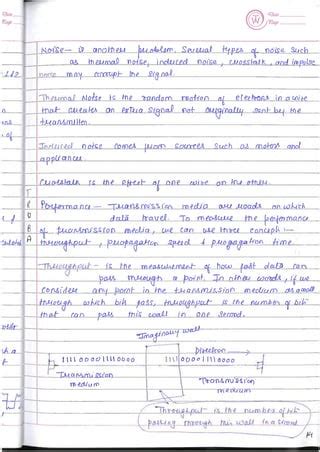 Noise - is another problem. Several types of noise such
as thermal noise, induced noise, crosstalk, and impulse
noise may corrupt the signal
Thermal Noise is the random motion of electrons in a wire
that creates an extra signal not originally sent by the
transmitter.
Induced noise comes from sources such as motors and
appliances.
Crosstalk is the effect of one wire on the other.
Performance - Transmission media are roads on which
data travel. To measure the performance
of transmission media, we can use three concepts :-
throughput, propagation speed & propagation time.
Throughput - is the measurement of how fast data can
pass through a point. In other words, if we
consider any point in the transmission medium as a wall
through which bits pass, throughput is the number of bits
that can pass this wall in one second.
Imaginary wall
Direction
1111 0000 1111 0000
1111 0000 1111 0000
Transmission
medium
Transmission
medium
Throughput is the number of bits
passing through this wall in a second